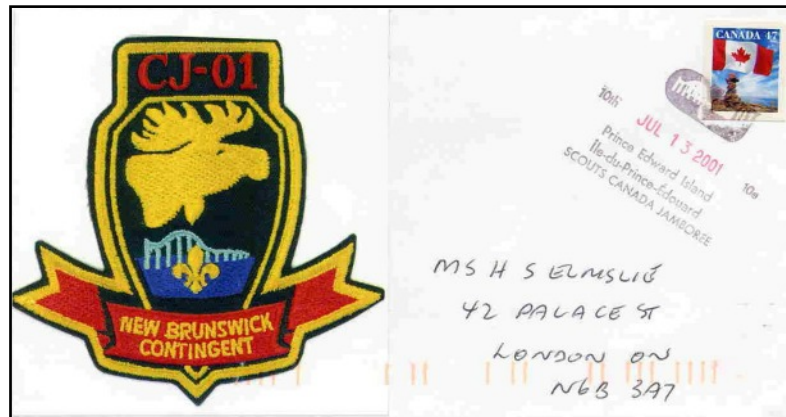 CJ-01
NEW BRUNSWICK
CONTINGENT
CANADA 47
10th
JUL 13 2001
Prince Edward Island
Île-du-Prince-Édouard
10e
SCOUTS CANADA JAMBOREE
MS H S ELMSLIE
42 PALACE ST
LONDON ON
N6B 3A7